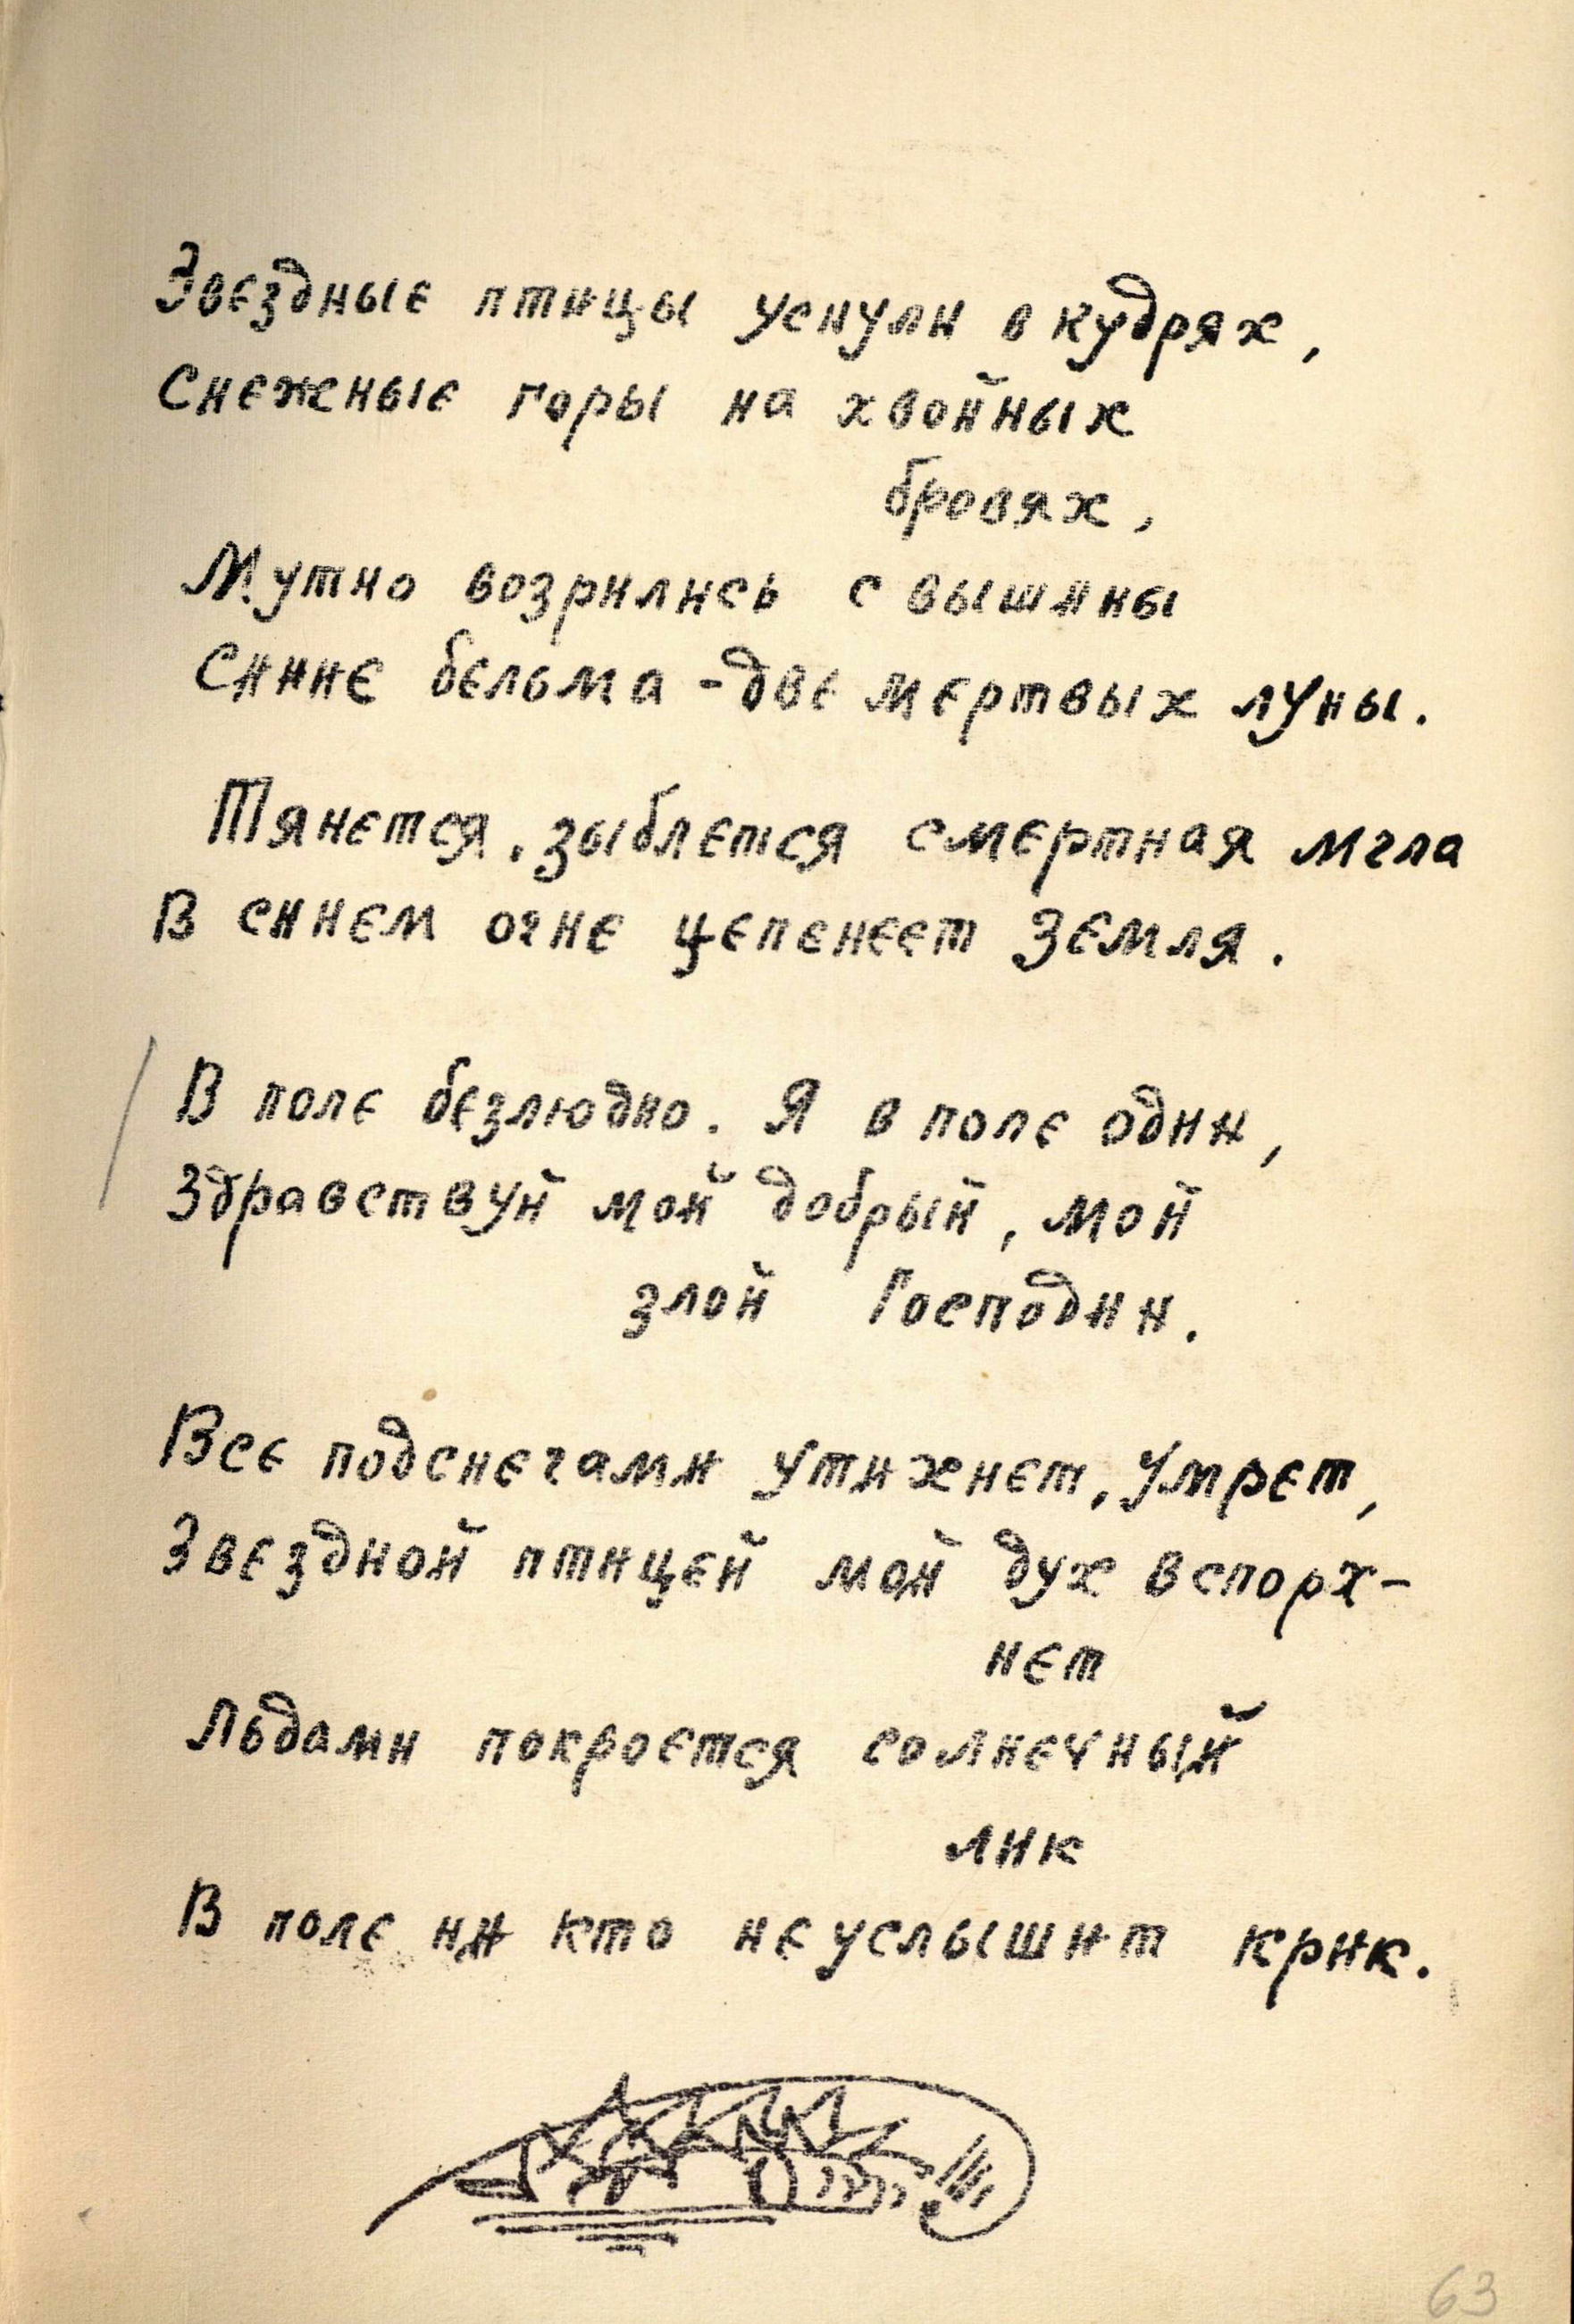 Звездные птицы уснули в кудрях,
Снежные горы на хвойных
бровях,
Мутно возрились с вышины
Синие бельма - две мертвых луны.
Тянется, зыблется смертная мгла
В синем огне цепенеет земля.
В поле безлюдно. Я в поле один,
Здравствуй мой добрый, мой
злой Господин.
Все подснегами утихнет, умрет,
Звездной птицей мой дух вспорх-
нет
Льдами покроется солнечный
лик
В поле ни кто не услышит крик.
63